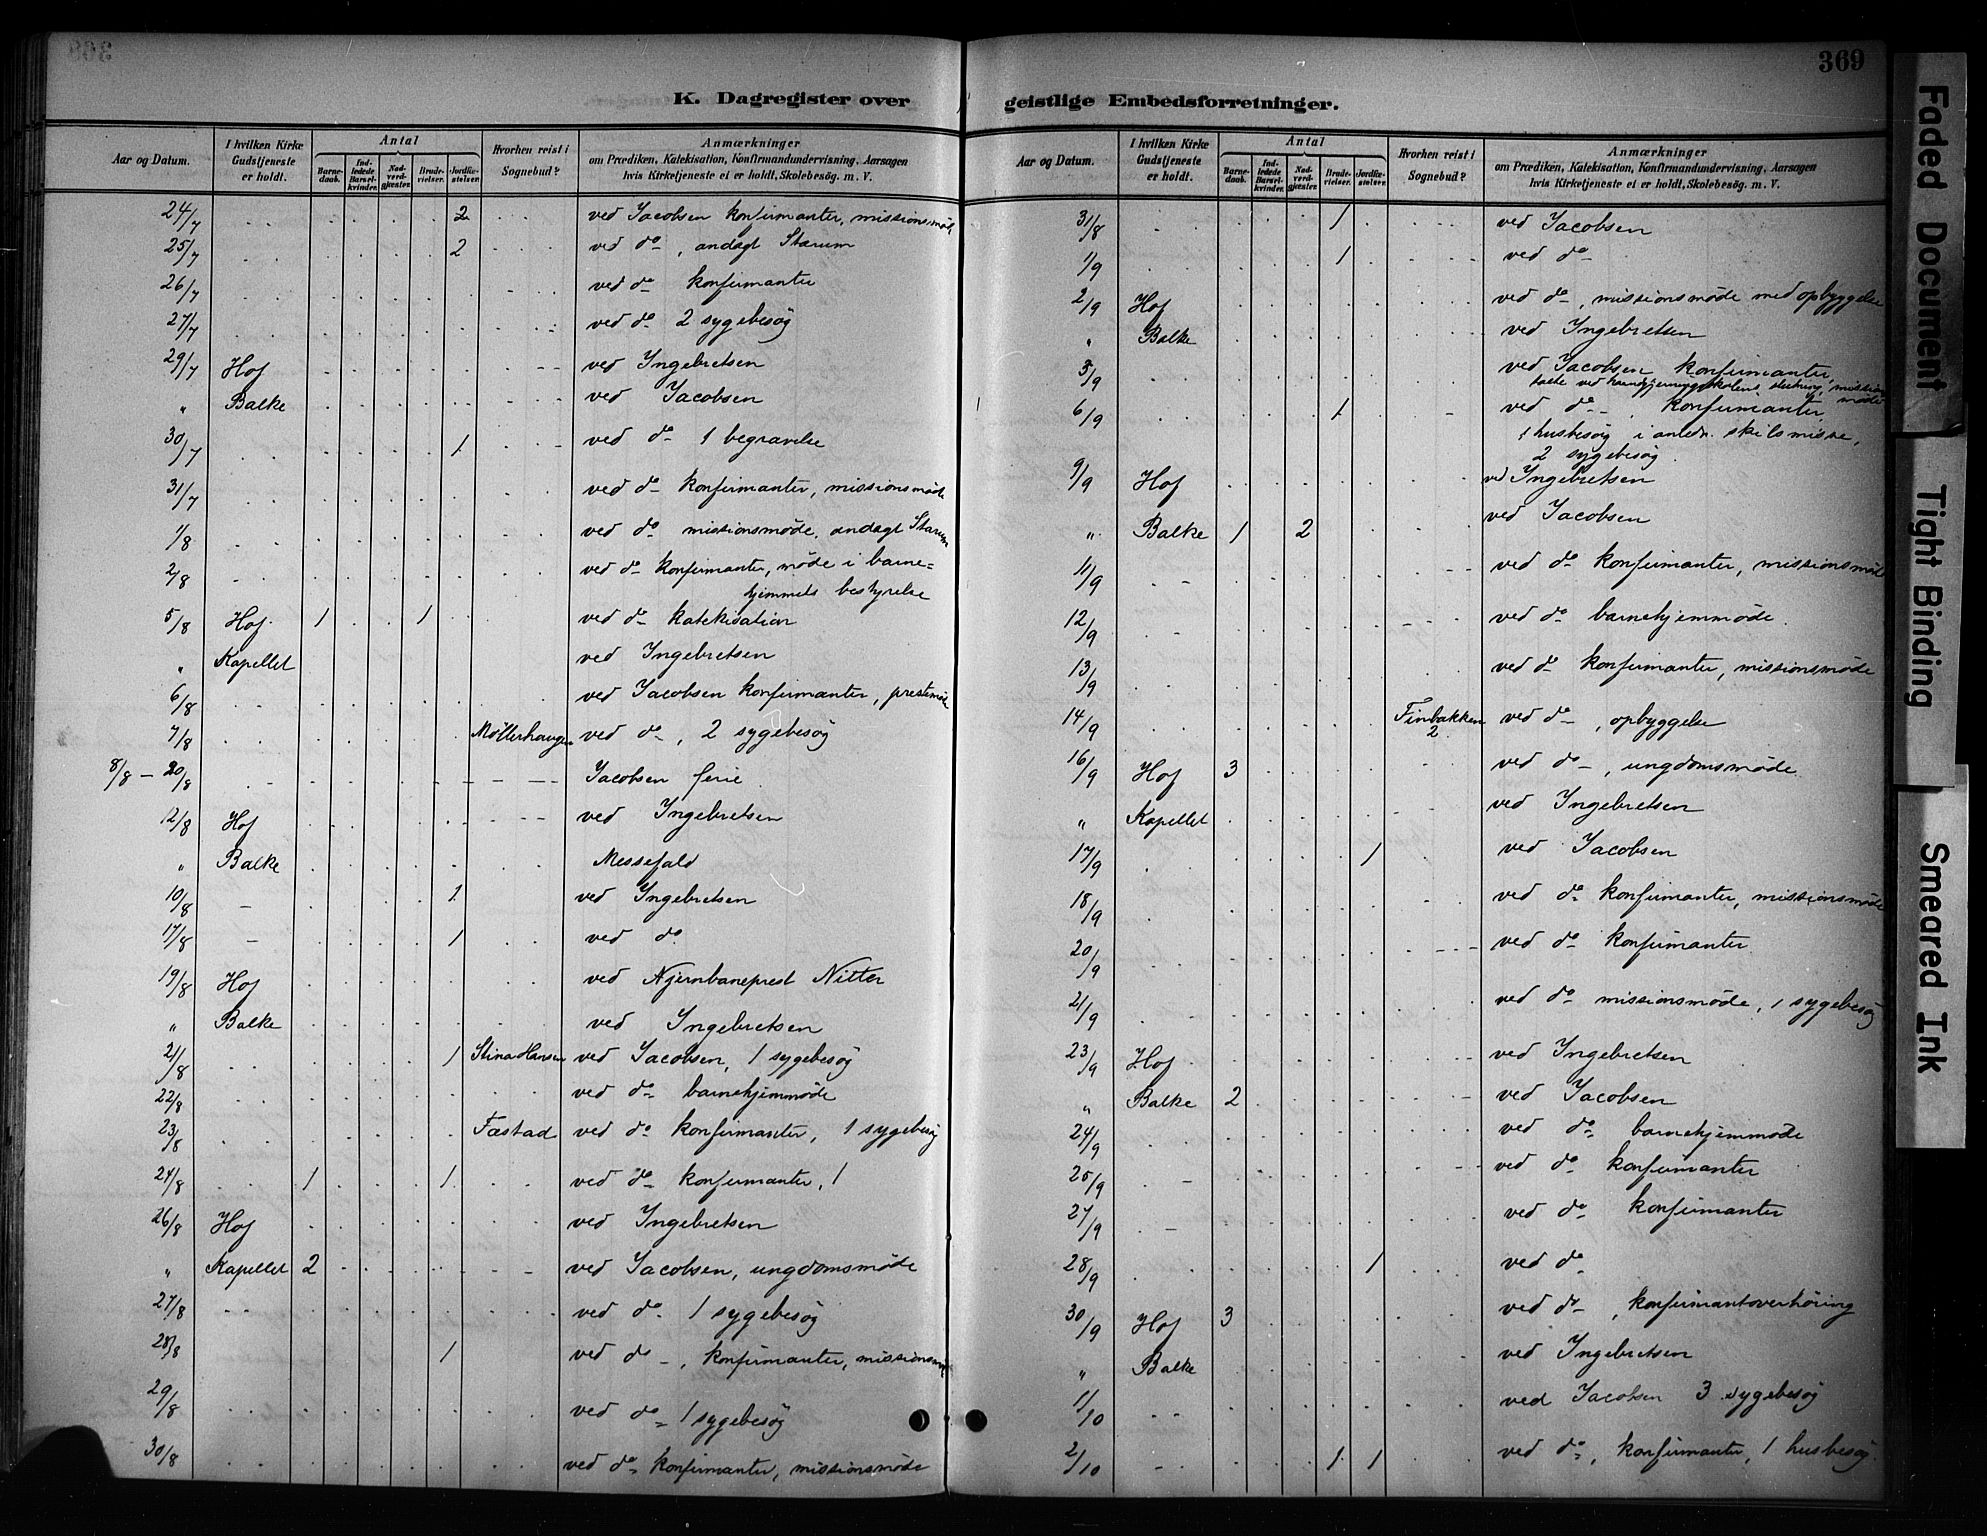 369
K. Dagregister over geistlige Embedsforretninger.
Aar og Datum. | I hvilken Kirke Gudstjeneste er holdt. | Antal | Barnedaab. | Indledede Barselkvinder. | Nadverdgjæster. | Brudevielser. | Jordfæstelser. | Hvorhen reist i Sognebud? | Anmærkninger om Prædiken, Katekisation, Konfirmandundervisning, Aarsagen hvis Kirketjeneste ei er holdt, Skolebesøg. m. V.
24/7 2 ved Jacobsen konfirmanter, missionsmøde
25/7 2 ved do, andagt Starum
26/7 ved do konfirmanter
27/7 ved do 2 sygebesøg
29/7 Hof ved Ingebretsen
" Balke ved Jacobsen
30/7 1 ved do 1 begravelse
31/7 ved do konfirmanter, missionsmøde
1/8 ved do missionsmøde, andagt Starum
2/8 ved do konfirmanter, møde i barne=
hjemmets bestyrelse
5/8 Hof 1 1 ved do katekisation
" Kapellet ved Ingebretsen
6/8 ved Jacobsen konfirmanter, prestemøde
7/8 Møllerhaugen ved do, 2 sygebesøg
8/8 - 20/8 Jacobsen ferie
12/8 Hof ved Ingebretsen
" Balke Messefald
10/8 1 ved Ingebretsen
17/8 1 ved do
19/8 Hof ved Nitter
" Balke ved Ingebretsen
21/8 1 Stina Hansen ved Jacobsen, 1 sygebesøg
22/8 ved do barnehjemmøde
23/8 Fæstad ved do konfirmanter, 1 sygebesøg
24/8 1 1 ved do konfirmanter, 1
26/8 Hof ved Ingebretsen
" Kapellet 2 ved Jacobsen, ungdomsmøde
27/8 ved do 1 sygebesøg
28/8 1 ved do, konfirmanter, missionsmøde
29/8 ved do 1 sygebesøg
30/8 ved do konfirmanter, missionsmøde
Aar og Datum. | I hvilken Kirke Gudstjeneste er holdt. | Antal | Barnedaab. | Indledede Barselkvinder. | Nadverdgjæster. | Brudevielser. | Jordfæstelser. | Hvorhen reist i Sognebud? | Anmærkninger om Prædiken, Katekisation, Konfirmandundervisning, Aarsagen hvis Kirketjeneste ei er holdt, Skolebesøg. m. V.
31/8 1 ved Jacobsen
1/9 1 ved do
2/9 Hof ved do, missionsmøde med opbyggelse
" Balke ved Ingebretsen
5/9 ved Jacobsen konfirmanter,
talte ved haandgjerningsskolens slutning, missionsmøde
6/9 1 ved do, konfirmanter
1 husbesøg i anledn. skilsmisse,
2 sygebesøg
9/9 Hof ved Ingebretsen
" Balke 1 2 ved Jacobsen
11/9 ved do konfirmanter, missionsmøde
12/9 ved do barnehjemmøde
13/9 ved do konfirmanter, missionsmøde
14/9 Finbakken 2 ved do, opbyggelse
16/9 Hof 3 ved do, ungdomsmøde
" Kapellet ved Ingebretsen
17/9 1 ved Jacobsen
18/9 ved do konfirmanter, missionsmøde
20/9 ved do konfirmanter
21/9 ved do missionsmøde, 1 sygebesøg
23/9 Hof ved Ingebretsen
" Balke 2 ved Jacobsen
24/9 ved do barnehjemmøde
25/9 ved do konfirmanter
27/9 ved do konfirmanter
28/9 1 ved do
30/9 Hof 3 ved do, konfirmantoverhøring
" Balke ved Ingebretsen
1/10 ved Jacobsen 3 sygebesøg
2/10 1 1 ved do, konfirmanter, 1 husbesøg
Faded Document
Tight Binding
Smeared Ink